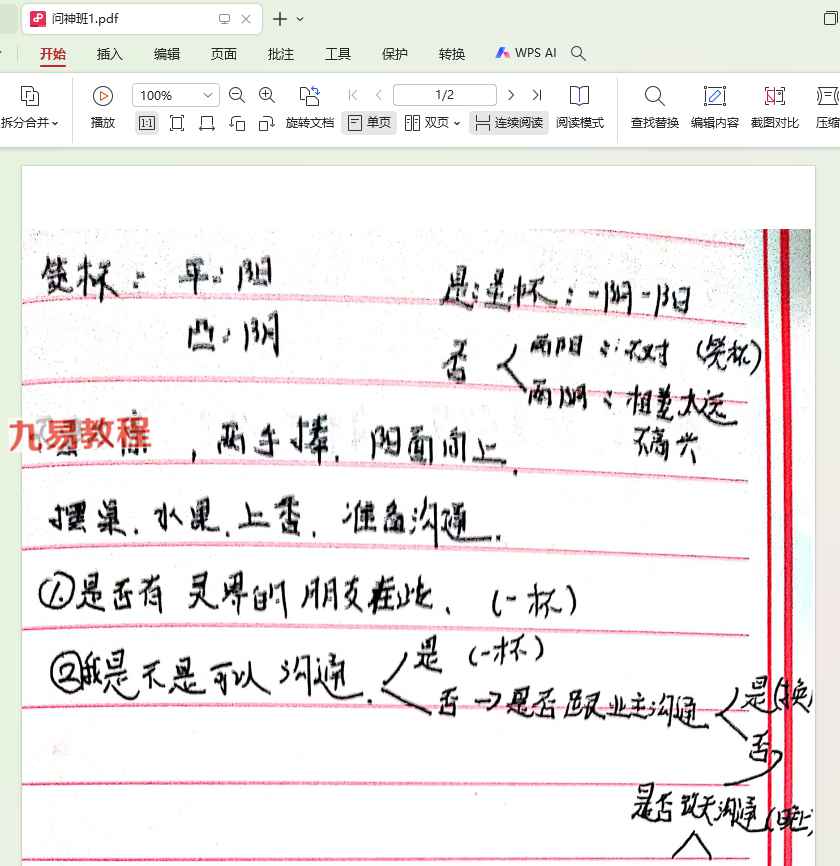 问神班1.pdf
开始 插入 编辑 页面 批注 工具 保护 转换 WPS AI
100% 1/2
拆分合并 播放 1:1 旋转文档 单页 双页 连续阅读 阅读模式 查找替换 编辑内容 截图对比 压缩
筊杯：平：阳
是：圣杯：一阴一阳
凸：阴
否 两阳：不对（笑杯）
两阴：相差太远
不高兴
九易教程
，两手捧，阳面向上．
摆桌．水果．上香．准备沟通．
①是否有灵界的朋友在此．（一杯）
②我是不是可以沟通．
是（一杯）
否→是否跟业主沟通
是（换
否
是否改天沟通（晚上